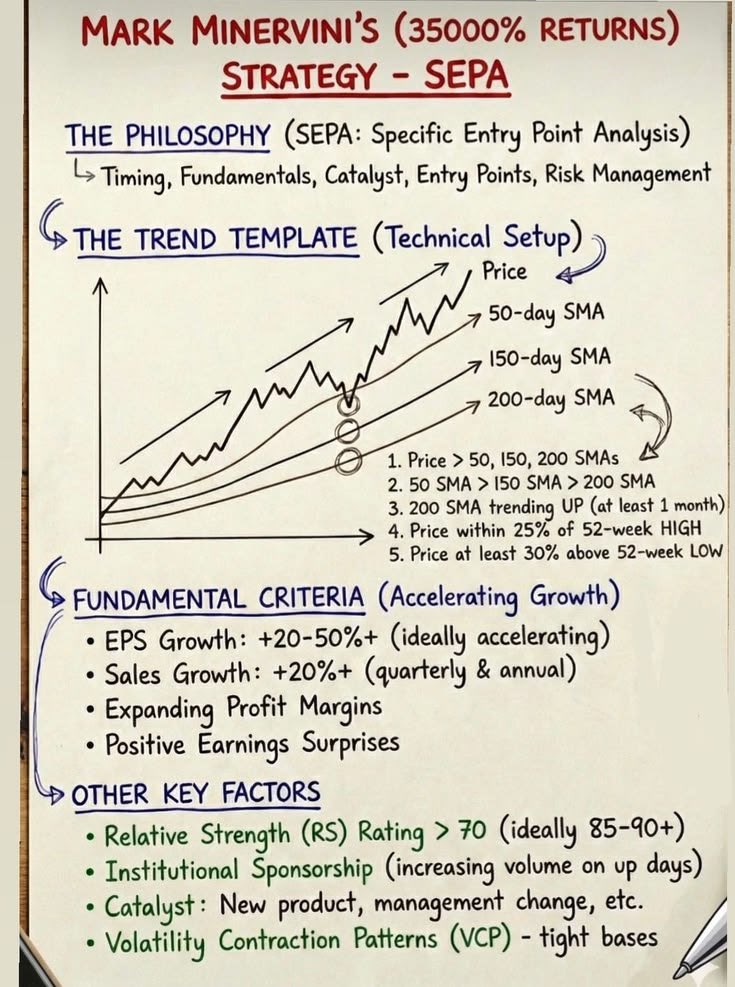 MARK MINERVINI'S (35000% RETURNS)
STRATEGY – SEPA
THE PHILOSOPHY (SEPA: Specific Entry Point Analysis)
Timing, Fundamentals, Catalyst, Entry Points, Risk Management
THE TREND TEMPLATE (Technical Setup)
Price
50-day SMA
150-day SMA
200-day SMA
1. Price > 50, 150, 200 SMAs
2. 50 SMA > 150 SMA > 200 SMA
3. 200 SMA trending UP (at least 1 month)
4. Price within 25% of 52-week HIGH
5. Price at least 30% above 52-week LOW
FUNDAMENTAL CRITERIA (Accelerating Growth)
• EPS Growth: +20-50%+ (ideally accelerating)
• Sales Growth: +20%+ (quarterly & annual)
• Expanding Profit Margins
• Positive Earnings Surprises
OTHER KEY FACTORS
• Relative Strength (RS) Rating > 70 (ideally 85-90+)
• Institutional Sponsorship (increasing volume on up days)
• Catalyst: New product, management change, etc.
• Volatility Contraction Patterns (VCP) – tight bases